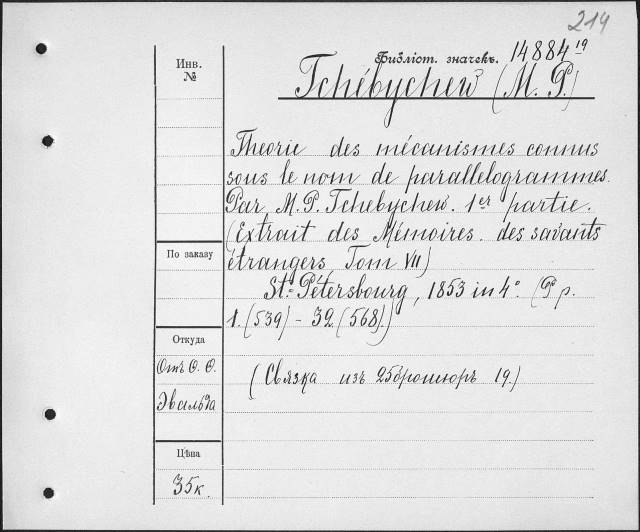 214
Библіот. значекъ. 14884 19
Инв.
№
Tchébychew (M. P.)
Theorie des mécanismes connus
sous le nom de parallelogrammes.
Par M. P. Tchebychew. 1er partie.
(Extrait des Mémoires des savants
étrangers, Tom VII)
St. Pétersbourg, 1853 in 4°. (P p.
1. (539) – 32. (568).)
(Связка изъ 25 брошюръ 19.)
По заказу
Откуда
Отъ Ѳ. Ѳ.
Эвальда
Цѣна
35 к.